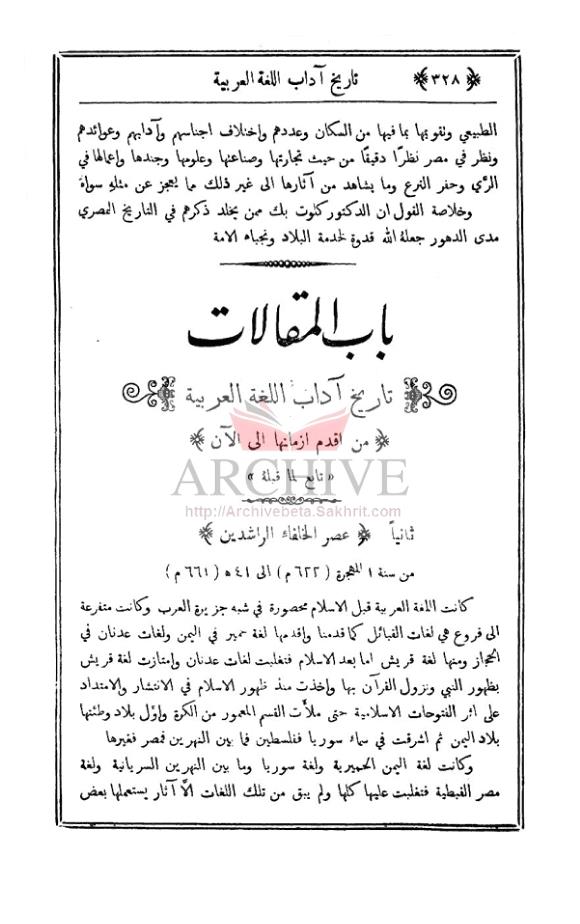 ﴿٣٢٨﴾ تاريخ آداب اللغة العربية
الطبيعي ونقويتها بما فيها من السكان وعددهم واختلاف اجناسهم وآدابهم وعوائدهم
ونظر في مصر نظرًا دقيقًا من حيث تجارتها وصناعتها وعلومها وجندها واعمالها في
الري وحفر الترع وما يشاهد من آثارها الى غير ذلك مما يعجز عن مثله سواهُ
وخلاصة القول ان الدكتور كلوت بك ممن يخلد ذكرهم في التاريخ المصري
مدى الدهور جعلهُ الله قدوة لخدمة البلاد ونجباه الامة
باب المقالات
تاريخ آداب اللغة العربية
﴿ من اقدم ازمانها الى الآن ﴾
« تابع لما قبلهُ »
ARCHIVE
http://Archivebeta.Sakhrit.com
ثانيًا ﴿ عصر الخلفاء الراشدين ﴾
من سنة ١ للهجرة (٦٢٢ م) الى ٤١ ه (٦٦١ م)
كانت اللغة العربية قبل الاسلام محصورة في شبه جزيرة العرب وكانت متفرعة
الى فروع هي لغات القبائل كما قدمنا واقدمها لغة حمير في اليمن ولغات عدنان في
الحجاز ومنها لغة قريش اما بعد الاسلام فتغلبت لغات عدنان وامتازت لغة قريش
بظهور النبي ونزول القرآن بها واخذت منذ ظهور الاسلام في الانتشار والامتداد
على اثر الفتوحات الاسلامية حتى ملأت القسم المعمور من الكرة واوَّل بلاد وطئتها
بلاد اليمن ثم اشرقت في سماء سوريا ففلسطين فما بين النهرين فمصر فغيرها
وكانت لغة اليمن الحميرية ولغة سوريا وما بين النهرين السريانية ولغة
مصر القبطية فتغلبت عليها كلها ولم يبق من تلك اللغات الَّا آثار يستعملها بعض